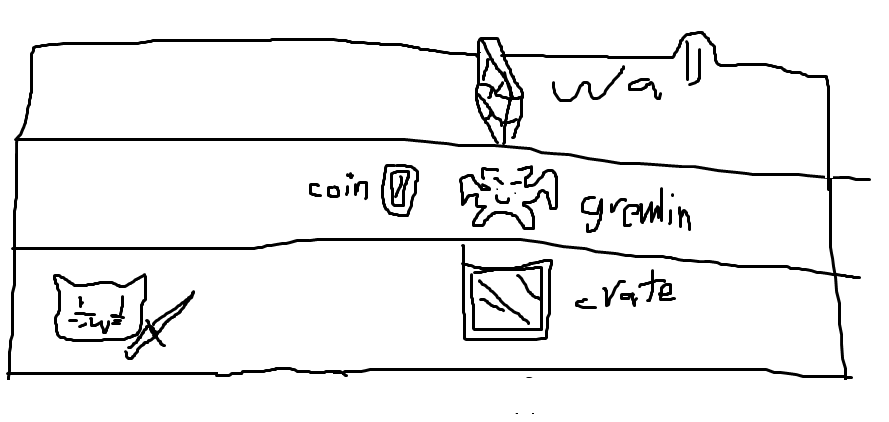 Wall
coin
gremlin
crate